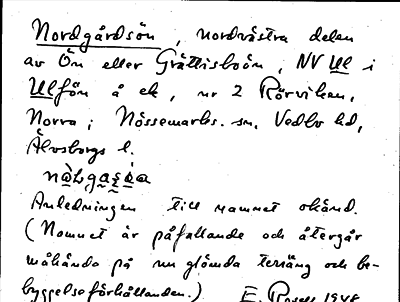 Nordgårdsön, nordvästra delen
av Ön eller Gråttisboön, NV Ul i
Ulfön å ek, nr 2 Rörviken,
Norra; Nössemarks. sn, Vedbo hd,
Älvsborgs l.
Anledningen till namnet okänd.
(Namnet är påfallande och återgår
måhända på nu glömda terräng och be-
byggelseförhållanden.) E. 1948